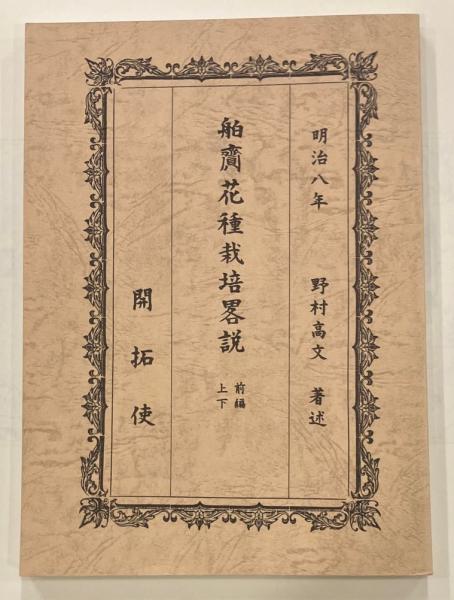 明治八年 野村高文 著述
舶齎花種栽培畧説 前編 上下
開拓使